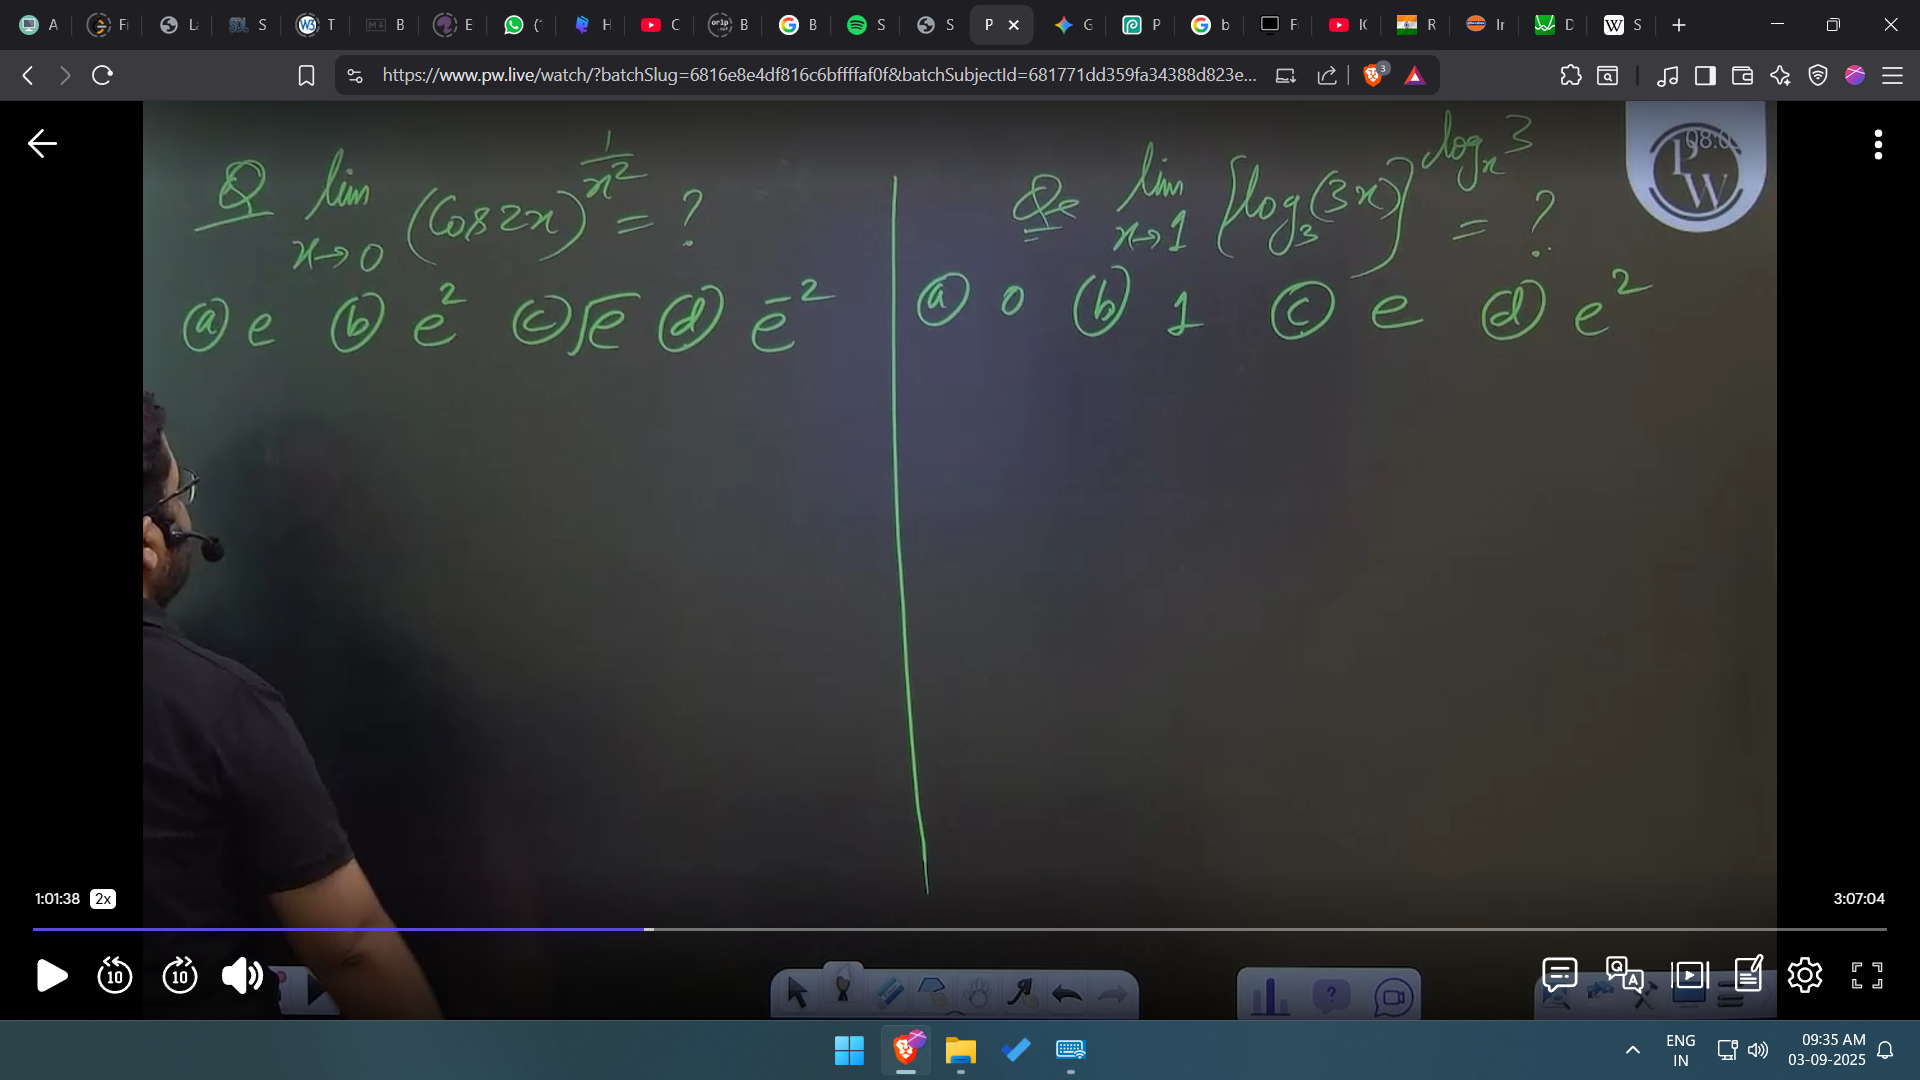 A Fi L S T B E (1 H C B B S S P G P b F IC R Ir D S
https://www.pw.live/watch/?batchSlug=6816e8e4df816c6bffffaf0f&batchSubjectId=681771dd359fa34388d823e... 3
Q lim x→0 (cos2x)^(1/x²) = ?
ⓐ e ⓑ e² ⓒ √e ⓓ e⁻²
Q. lim x→1 [log₃(3x)]^(logₓ3) = ?
ⓐ 0 ⓑ 1 ⓒ e ⓓ e²
PW
1:01:38 2x 3:07:04
10 10
ENG IN
09:35 AM
03-09-2025